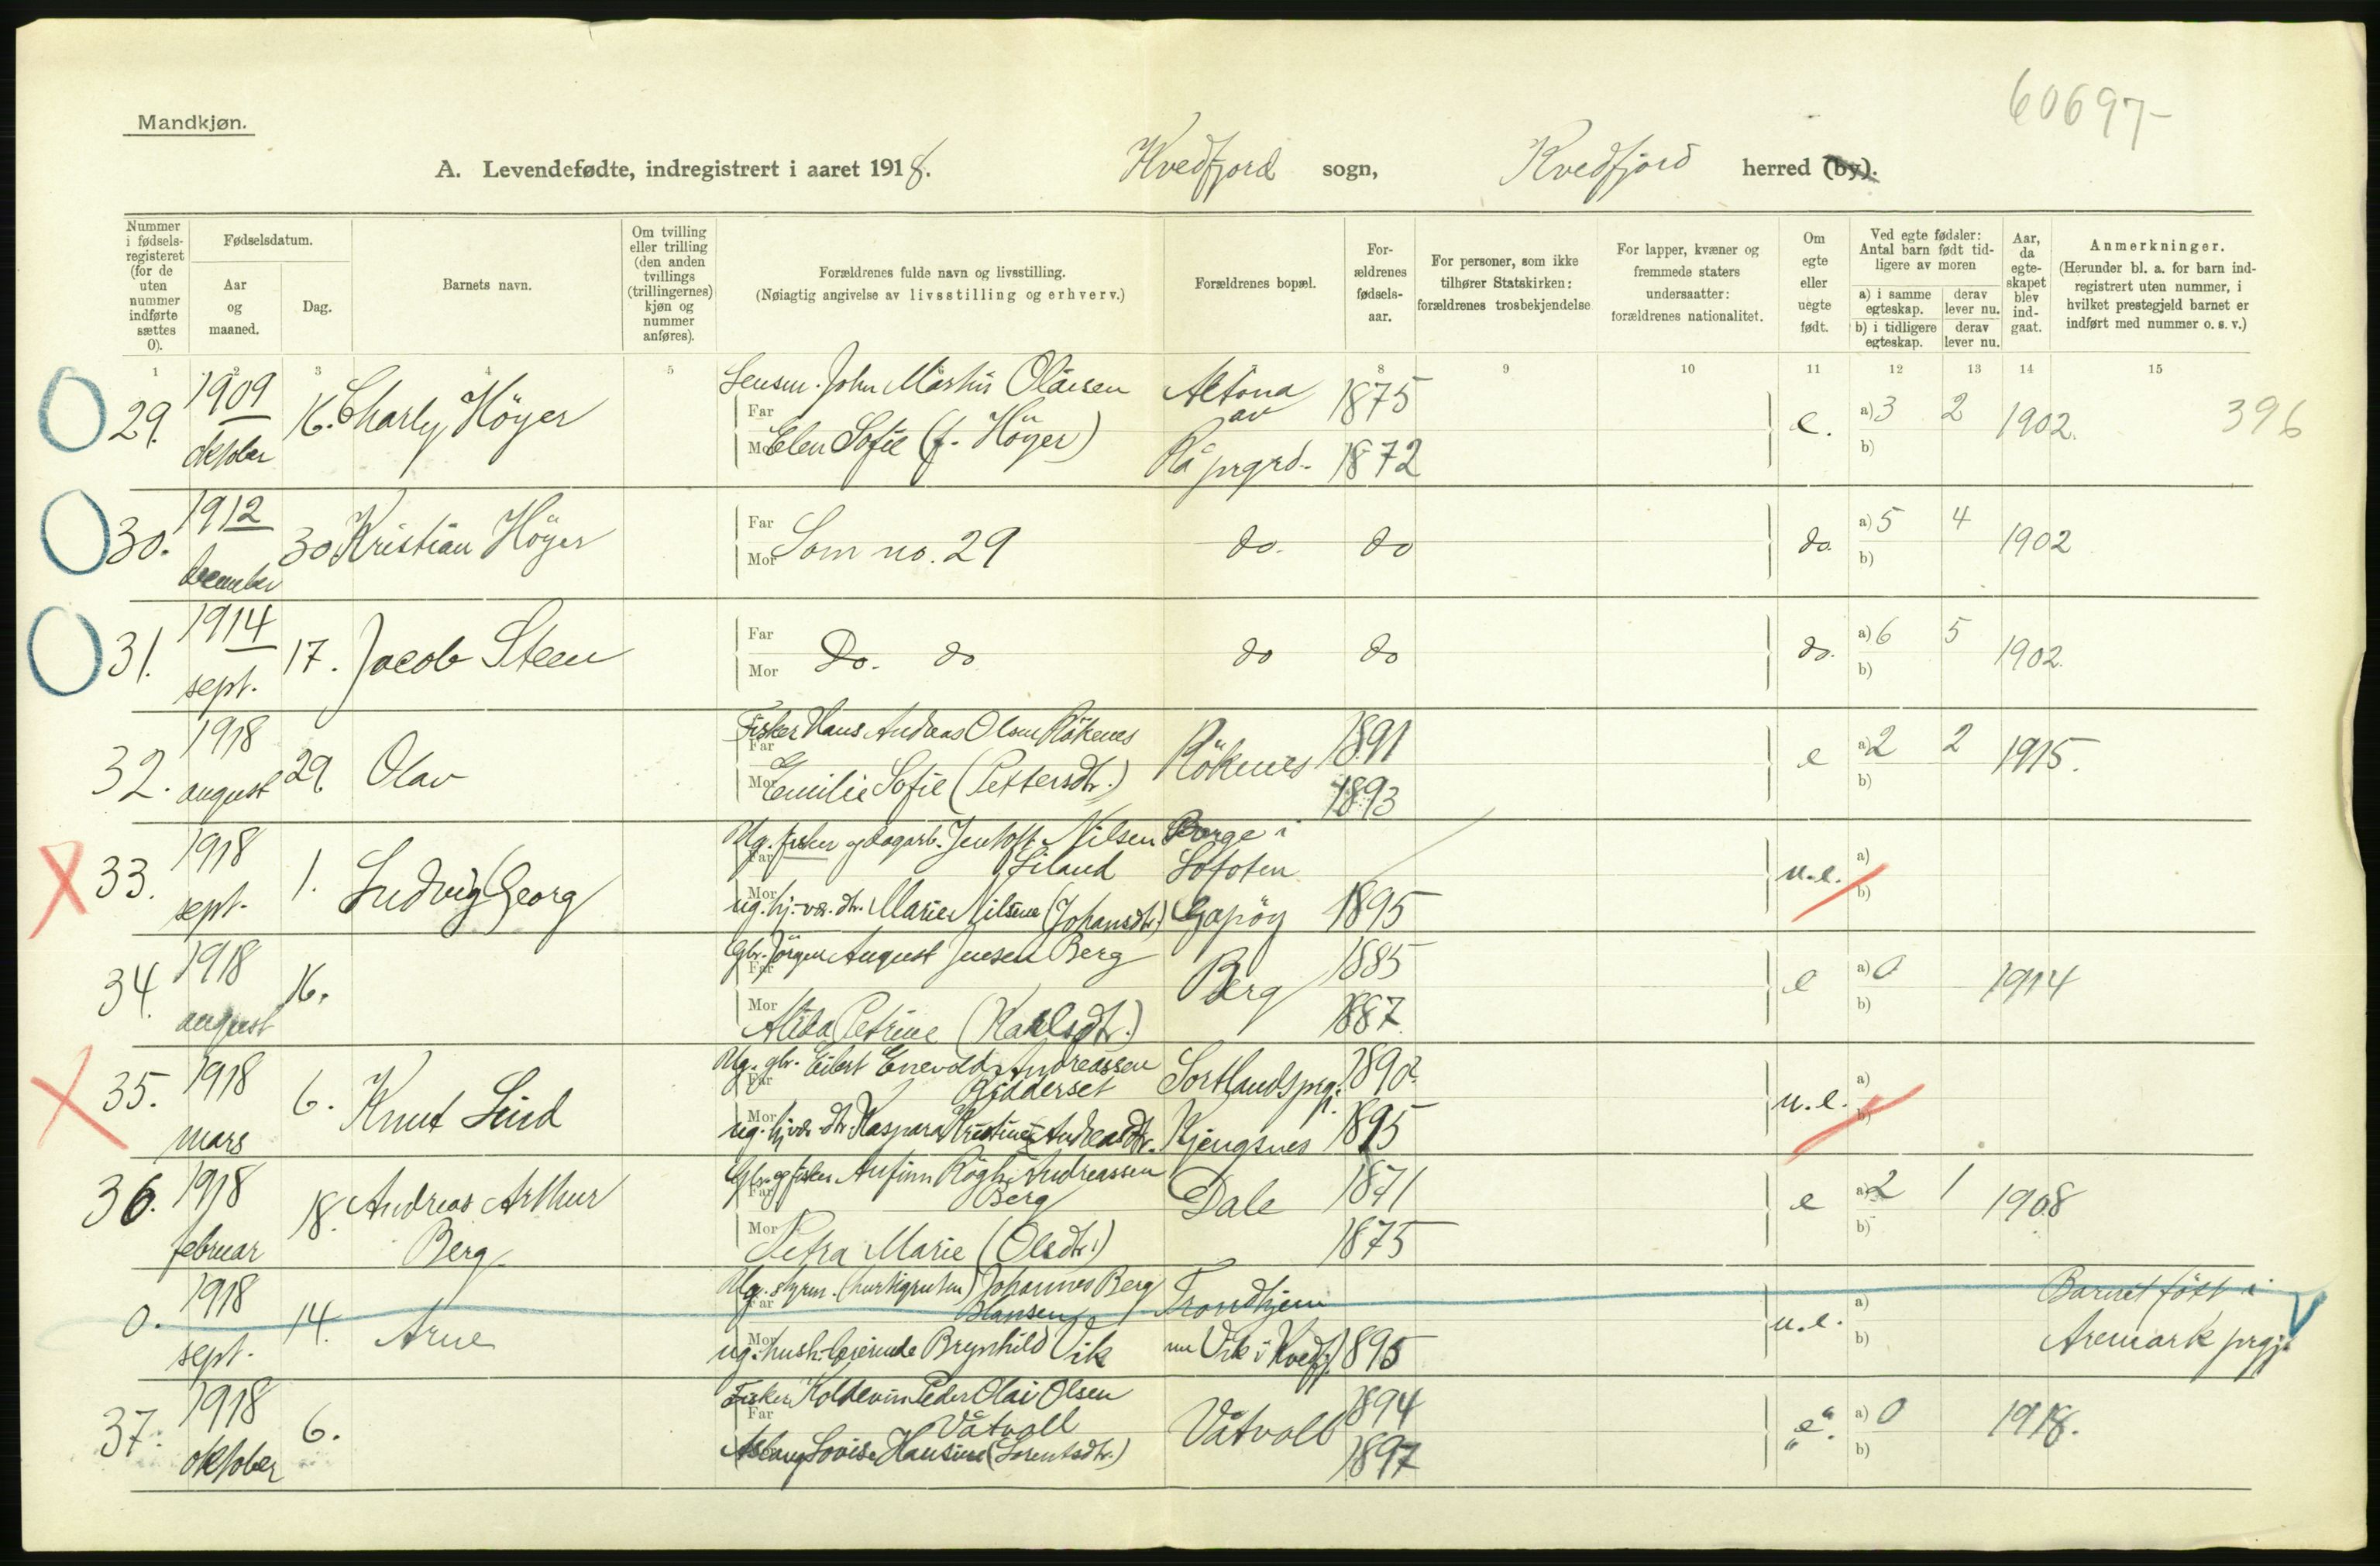 60697-
Mandkjøn.
A. Levendefødte, indregistrert i aaret 1918. Kvedfjord sogn, Kvedfjord herred (by).
Nummer i fødselsregisteret (for de uten nummer indførte sættes 0).
Fødselsdatum.
Aar og maaned.
Dag.
Barnets navn.
Om tvilling eller trilling (den anden tvillings (trillingernes) kjøn og nummer anføres).
Forældrenes fulde navn og livsstilling.
(Nøiagtig angivelse av livsstilling og erhverv.)
Forældrenes bopæl.
Forældrenes fødselsaar.
For personer, som ikke tilhører Statskirken: forældrenes trosbekjendelse
For lapper, kvæner og fremmede staters undersaatter: forældrenes nationalitet.
Om egte eller uegte født.
Ved egte fødsler: Antal barn født tidligere av moren
a) i samme egteskap. derav lever nu.
b) i tidligere egteskap. derav lever nu.
Aar, da egteskapet blev indgaat.
Anmerkninger.
(Herunder bl. a. for barn indregistrert uten nummer, i hvilket prestegjeld barnet er indført med nummer o. s. v.)
1 2 3 4 5 8 9 10 11 12 13 14 15
29. 1909 oktober 16. Charly Höyer
Far Lensm. John Martin Olaisen Altona av 1875
Mor Elen Sofie (f. Höyer) Rå prgrd. 1872
e. a) 3 2 b) 1902. 396
30. 1912 december 30 Kristian Höyer
Far Mor Som no. 29 do. do do. a) 5 4 b) 1902
31. 1914 sept. 17. Jacob Steen
Far Mor Do. do do do do. a) 6 5 b) 1902.
32. 1918 august 29. Olav
Far Fisker Hans Andreas Olsen Rökenes Rökenes 1891
Mor Emilie Sofie (Pettersdtr.) 1893
e a) 2 2 b) 1915.
33. 1918 sept. 1. Ludvig Georg
Far Ug. fisker og dagarb. Jentoft Nilsen Liland Borge i Lofoten
Mor ug. hj. vær. dtr. Marie Nilsine (Johansdtr.) Gapöy 1895
u.e. a) b)
34. 1918 august 16.
Far Gbr. Jörgen August Jensen Berg Berg 1885
Mor Alida Petrine (Karlsdtr.) 1887.
e a) 0 b) 1914
35. 1918 mars 6. Knut Lind
Far Ug. gbr. Eilert Enevold Andreassen Sortlands prgj. 1890?
Mor ug. hj. vær. dtr. Kaspara Kristine Andreasdtr. Kjengsnes 1895
u.e. a) b)
36. 1918 februar 18. Andreas Arthur Berg
Far Gbr. og fisker Anfinn Rögh Andreassen Berg Dale 1871
Mor Petra Marie (Olsdtr.) 1875
e a) 2 1 b) 1908
0. 1918 sept. 14. Arne
Far Ug. styrm. (hurtigruten) Johannes Berg Hansen Trondhjem
Mor ug. hush. Brynhild Vik nu Vik i Kvedfj. 1895
u.e. a) b) Barnet født i Aremark prgj.
37. 1918 oktober 6.
Far Fisker Koldevin Peder Olai Olsen Våtvoll Våtvoll 1894
Aslaug Lovise Hansine (Lorentsdtr.) 1897
"e". a) 0 b) 1918.